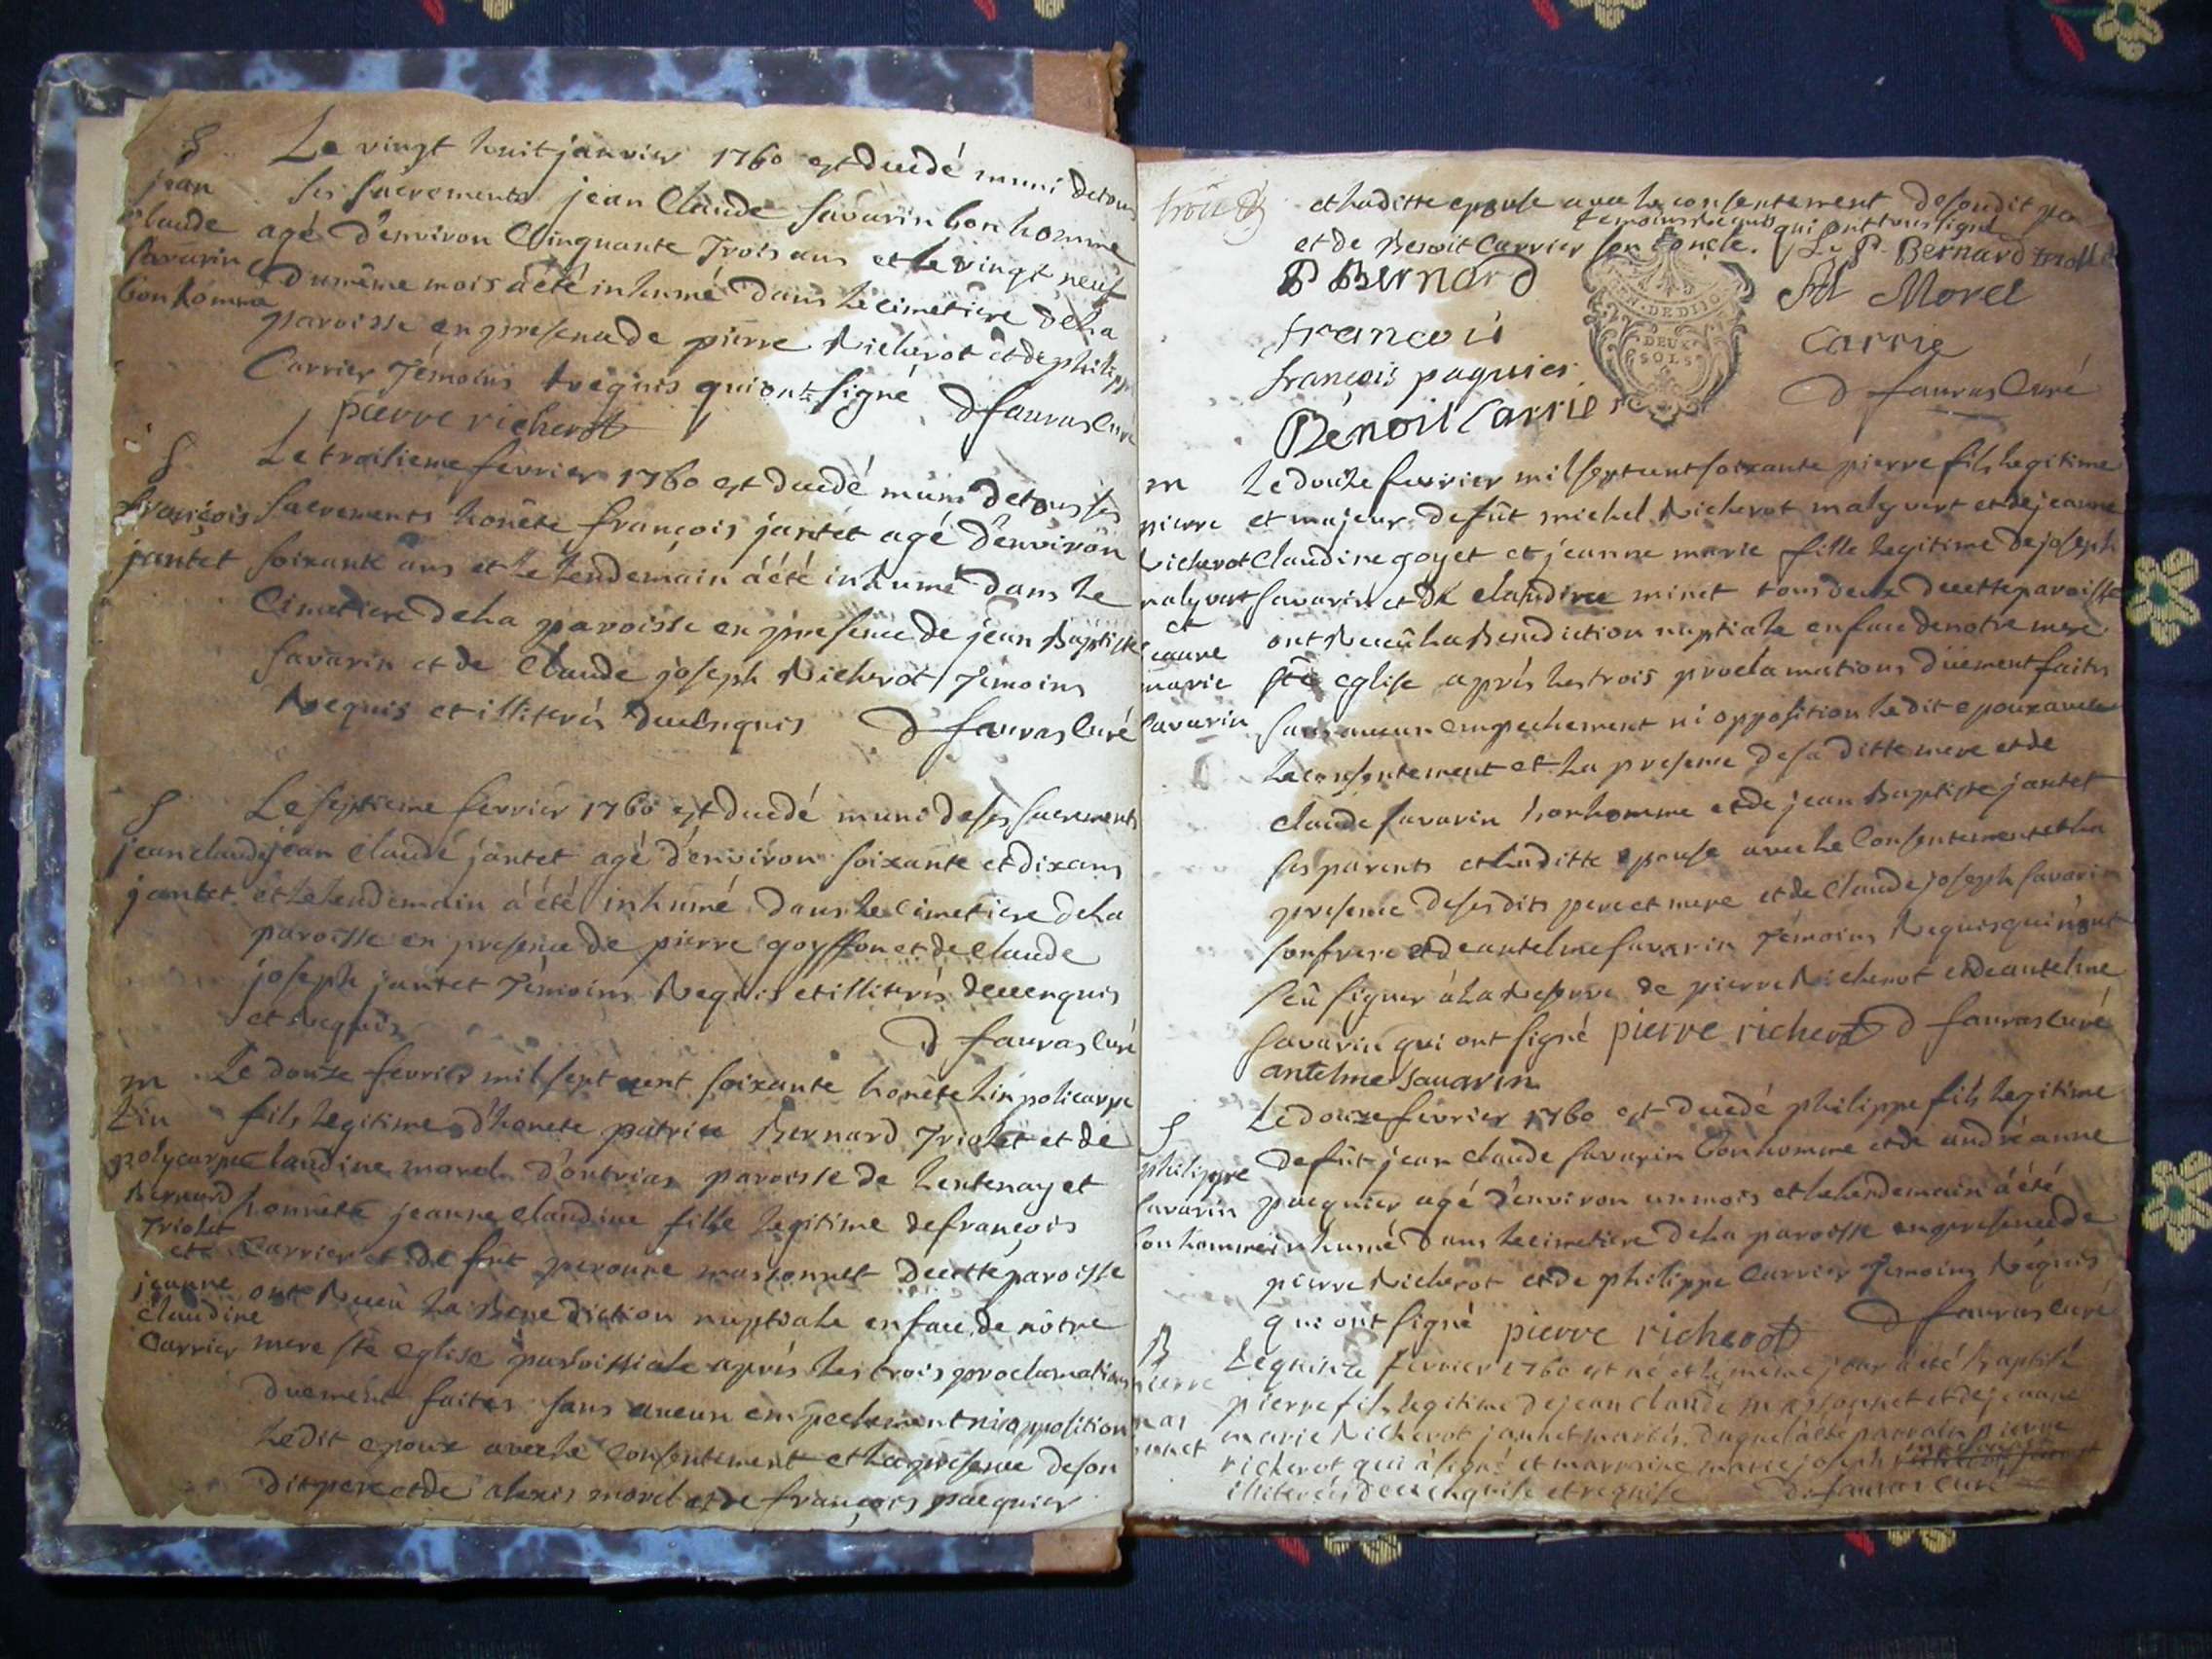 S
jean
Claude
Savarin
bonhomme
Le vingt huit janvier 1760 est decedé muni de tous
ses sacrements jean Claude Savarin bonhomme
agé d'environ Cinquante Trois ans et le vingt neuf
du même mois a été inhumé dans le cimetiere de la
paroisse en presence de pierre Richerot et de philippe
Carrier Témoins requis qui ont signé D fauras Curé
pierre richerot
S
françois
jantet
Le troisieme fevrier 1760 est decedé muni de tous ses
sacrements honête françois jantet agé d'environ
soixante ans et le lendemain a été inhumé dans le
Cimetiere de la paroisse en presence de jean Baptiste
Savarin et de Claude joseph Richerot Témoins
Requis et illiterés de ce enquis D fauras Curé
S
jean claude
jantet
Le septieme fevrier 1760 est decedé muni de ses sacrements
jean Claude jantet agé d'environ soixante et dix ans
et le lendemain a été inhumé dans le cimetiere de la
paroisse en presence de pierre goyffon et de Claude
joseph jantet Témoins Requis et illiterés de ce enquis
et requis
D fauras Curé
m
Lin
polycarpe
Bernard
Triolet
et
jeanne
claudine
Carrier
Le douze fevrier mil sept cent soixante honête Lin policarpe
fils legitime d'honete patrice Bernard Triolet et de
Claudine morel d'outrias paroisse de Lentenay et
honnête jeanne Claudine fille legitime de françois
Carrier et de fût peronne massonnet de cette paroisse
ont Reçû la Benediction nuptiale en face de nôtre
mere ste eglise paroissiale aprés les trois proclamations
duement faites sans aucun empechement ni opposition
Ledit epoux avec le Consentement et la presence de son
dit pere et de alexis morel et de françois paequier
trois
et laditte epouse avec le consentement de sondit pere
et de Benoit Carrier son oncle. temoins requis qui ont tous signé
P Bernard
L. P. Bernard triolet
GEN. DE DIJON
DEUX
SOLS
Morel
francois
carrie
françois paquier
D fauras Curé
Benoit Carrier
m
pierre
Richerot
malyvert
et
jeanne
marie
Savarin
Le douze fevrier mil sept cent soixante pierre fils legitime
et majeur de fût michel Richerot malyvert et de jeanne
Claudine goyet et jeanne marie fille legitime de joseph
Savarin et de claudine minet tous deux de cette paroisse
ont Reçeû la Benediction nuptiale en face de notre mere
ste eglise aprés les trois proclamations düement faites
sans aucun empechement ni opposition ledit epoux avec
le consentement et la presence de sa ditte mere et de
claude Savarin bonhomme et de jean Baptiste jantet
ses parents et laditte epouse avec le Consentement et la
presence de ses dits pere et mere et de Claude joseph Savarin
son frere et de antelme Savarin Témoins Requis qui n'ont
seû signer à la Reserve de pierre Richerot et de antelme
Savarin qui ont signé pierre richerot D fauras Curé
antelme Sauarin
S
philippe
Savarin
bonhomme
Le douze fevrier 1760 est decedé philippe fils legitime
de fût jean claude Savarin bonhomme et de andréanne
paequier agé d'environ un mois et le lendemain a été
inhumé dans le cimetiere de la paroisse en presence de
pierre Richerot et de philippe Carrier Temoins Réquis
qui ont signé pierre richerot D fauras Curé
B
pierre
mas
sonnet
Le quinze fevrier 1760 est né et le même jour a été Baptisé
pierre fils legitime de jean claude massonnet et de jeanne
marie Richerot jannet mariés. duquel a été parrain pierre
richerot qui à signé et marraine marie joseph
illiterée de ce enquise et requise D fauras Curé